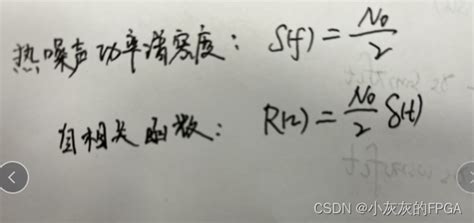 热噪声功率谱密度: S(f) = N₀/2
自相关函数: R(τ) = N₀/2 δ(t)
CSDN @小灰灰的FPGA